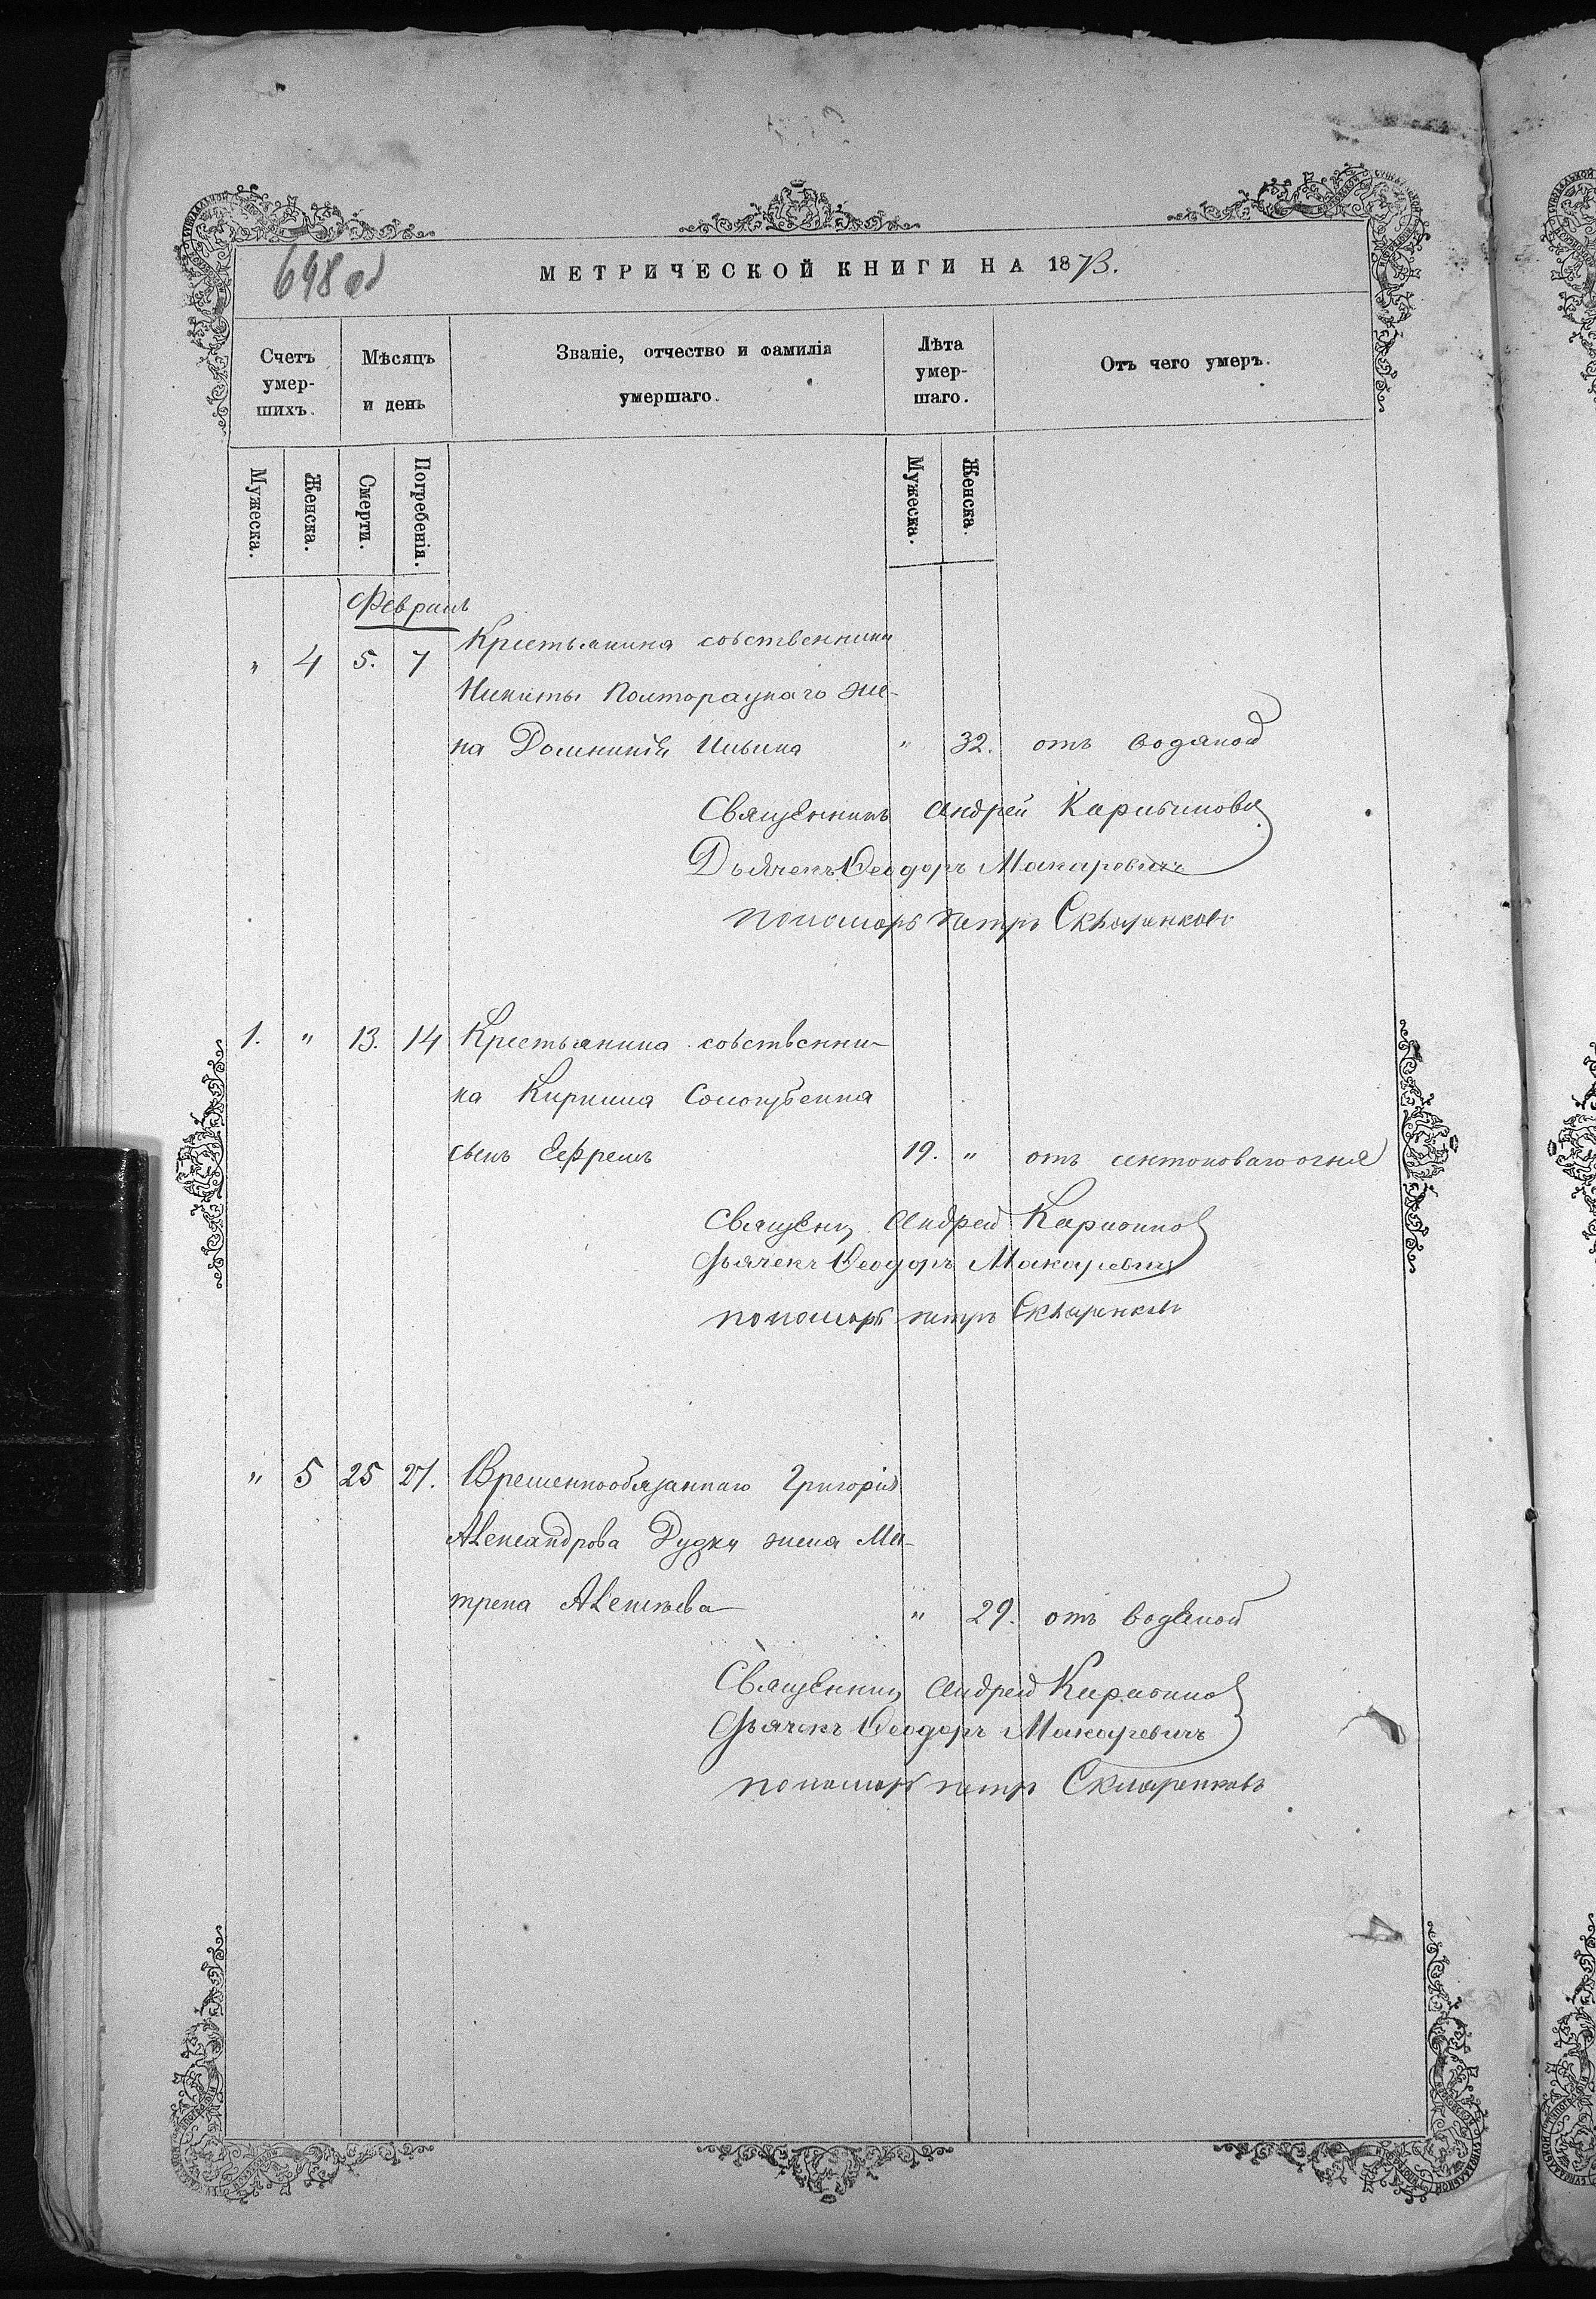 698 об
МЕТРИЧЕСКОЙ КНИГИ НА 1873.
Счетъ умер-шихъ.
Мѣсяцъ и день
Званіе, отчество и фамилія умершаго.
Лѣта умер-шаго.
Отъ чего умеръ.
Мужеска.
Женска.
Смерти.
Погребенія.
Мужеска.
Женска.
Февраль
" 4 5. 7 Крестьянина собственника
Никиты Полторацкаго же-
на Домникія Ильина " 32. отъ водяной
Священникъ Андрей
Дьячекъ Ѳеодоръ Макаревичъ
Пономарь Петръ Скляренковъ
1. " 13. 14 Крестьянина собственни-
ка Кирилла Сологубенка
сынъ Ефремъ 19. " отъ антоноваго огня
Священ Андрей
Дьячекъ Ѳеодоръ Макаревичъ
пономарь Петръ Скляренковъ
" 5 25 27. Временнообязаннаго Григорія
Александрова Дудки жена Ма-
трена Алексѣева " 29. отъ водяной
Священникъ Андрей
Дьячекъ Ѳеодоръ Макаревичъ
пономарь Петръ Скляренковъ